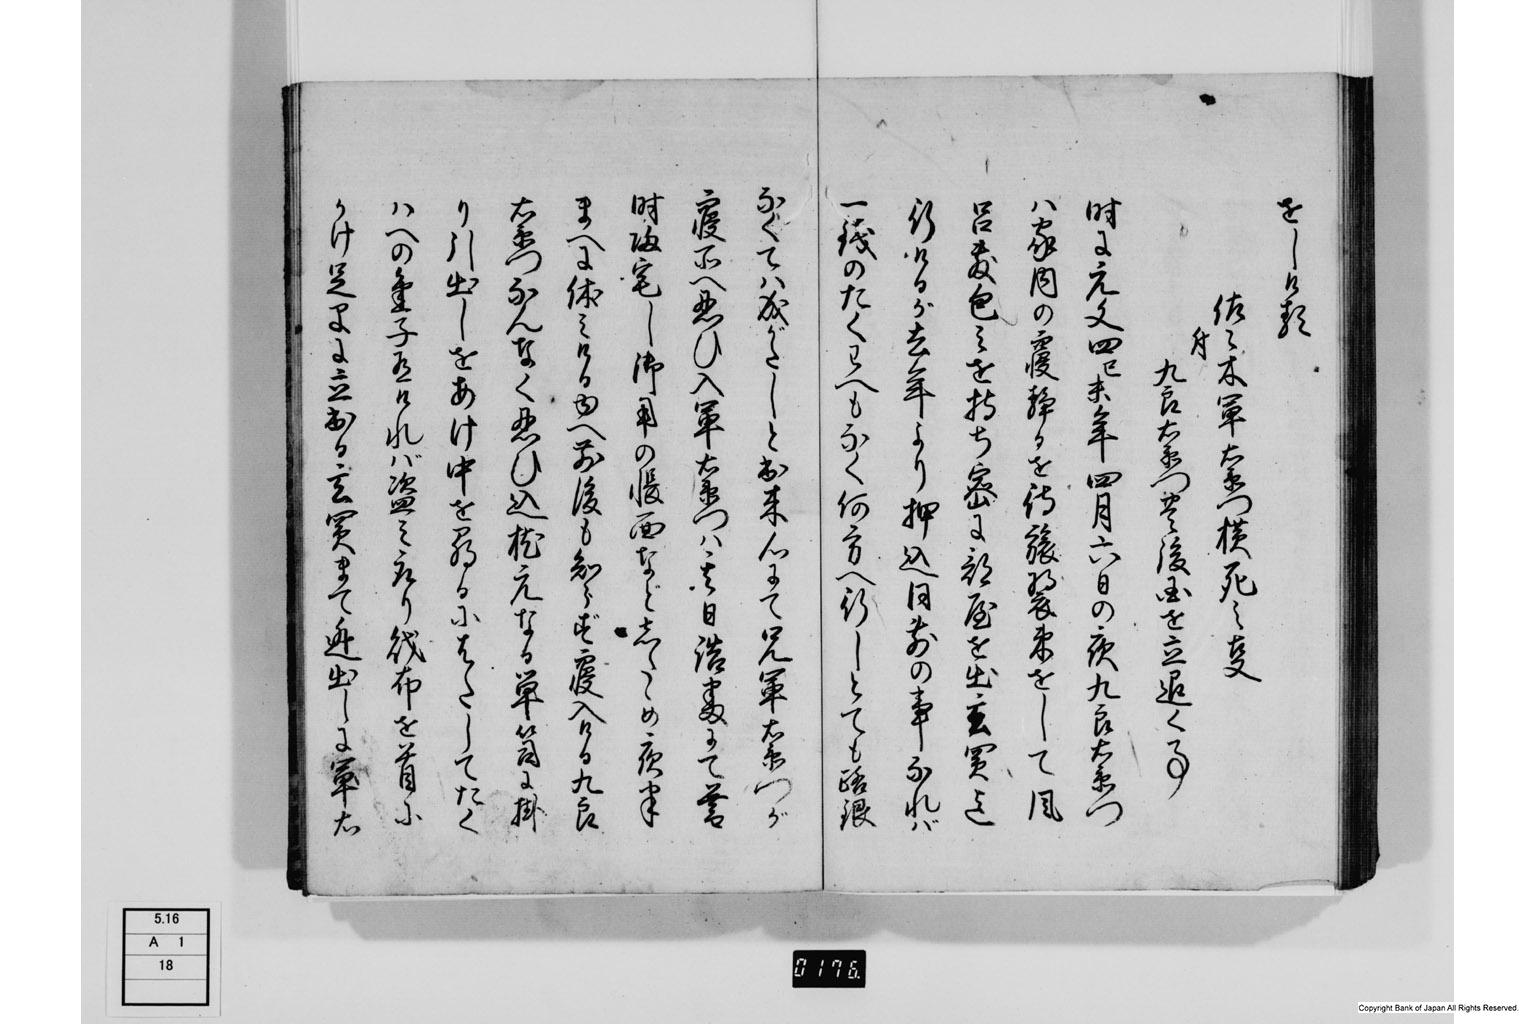 をしける
佐々木軍右衛門横死之支
并
九良右衛門豊後国を立退く事
時に元文四己未年四月六日の夜九良右衛門
ハ家内の寝静るを待旅装束をして風
呂敷包ミを持ち密に部屋を出玄関迄
行けるが去年より押込同前の事なれバ
一銭のたくわへもなく何方へ行しとても路銀
なくてハ成がたしと出来心にて兄軍右衛門が
寝所へ忍び入軍右衛門ハ其日諸勘にて暮
時帰宅し御用の帳面などしたゝめ夜半
まへに休ミける由へ前後も知らず寝入ける九良
右衛門なんなく忍び込枕元なる箪笥に掛
り引出しをあけ中を尋るにたしてたく
ハへの金子有けれバ盗ミ取り財布を首に
かけ足早に立出る玄関まて逃出しに軍右
5.16
A 1
18
0176
Copyright Bank of Japan All Rights Reserved.